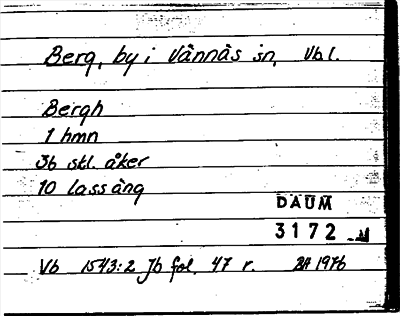 Berg, by i Vännäs sn, Vbl.
Bergh
1 hmn
36 skl. åker
10 lass äng
DAUM
3172
Vb 1543:2 Jb fol. 47 r. BH 1976